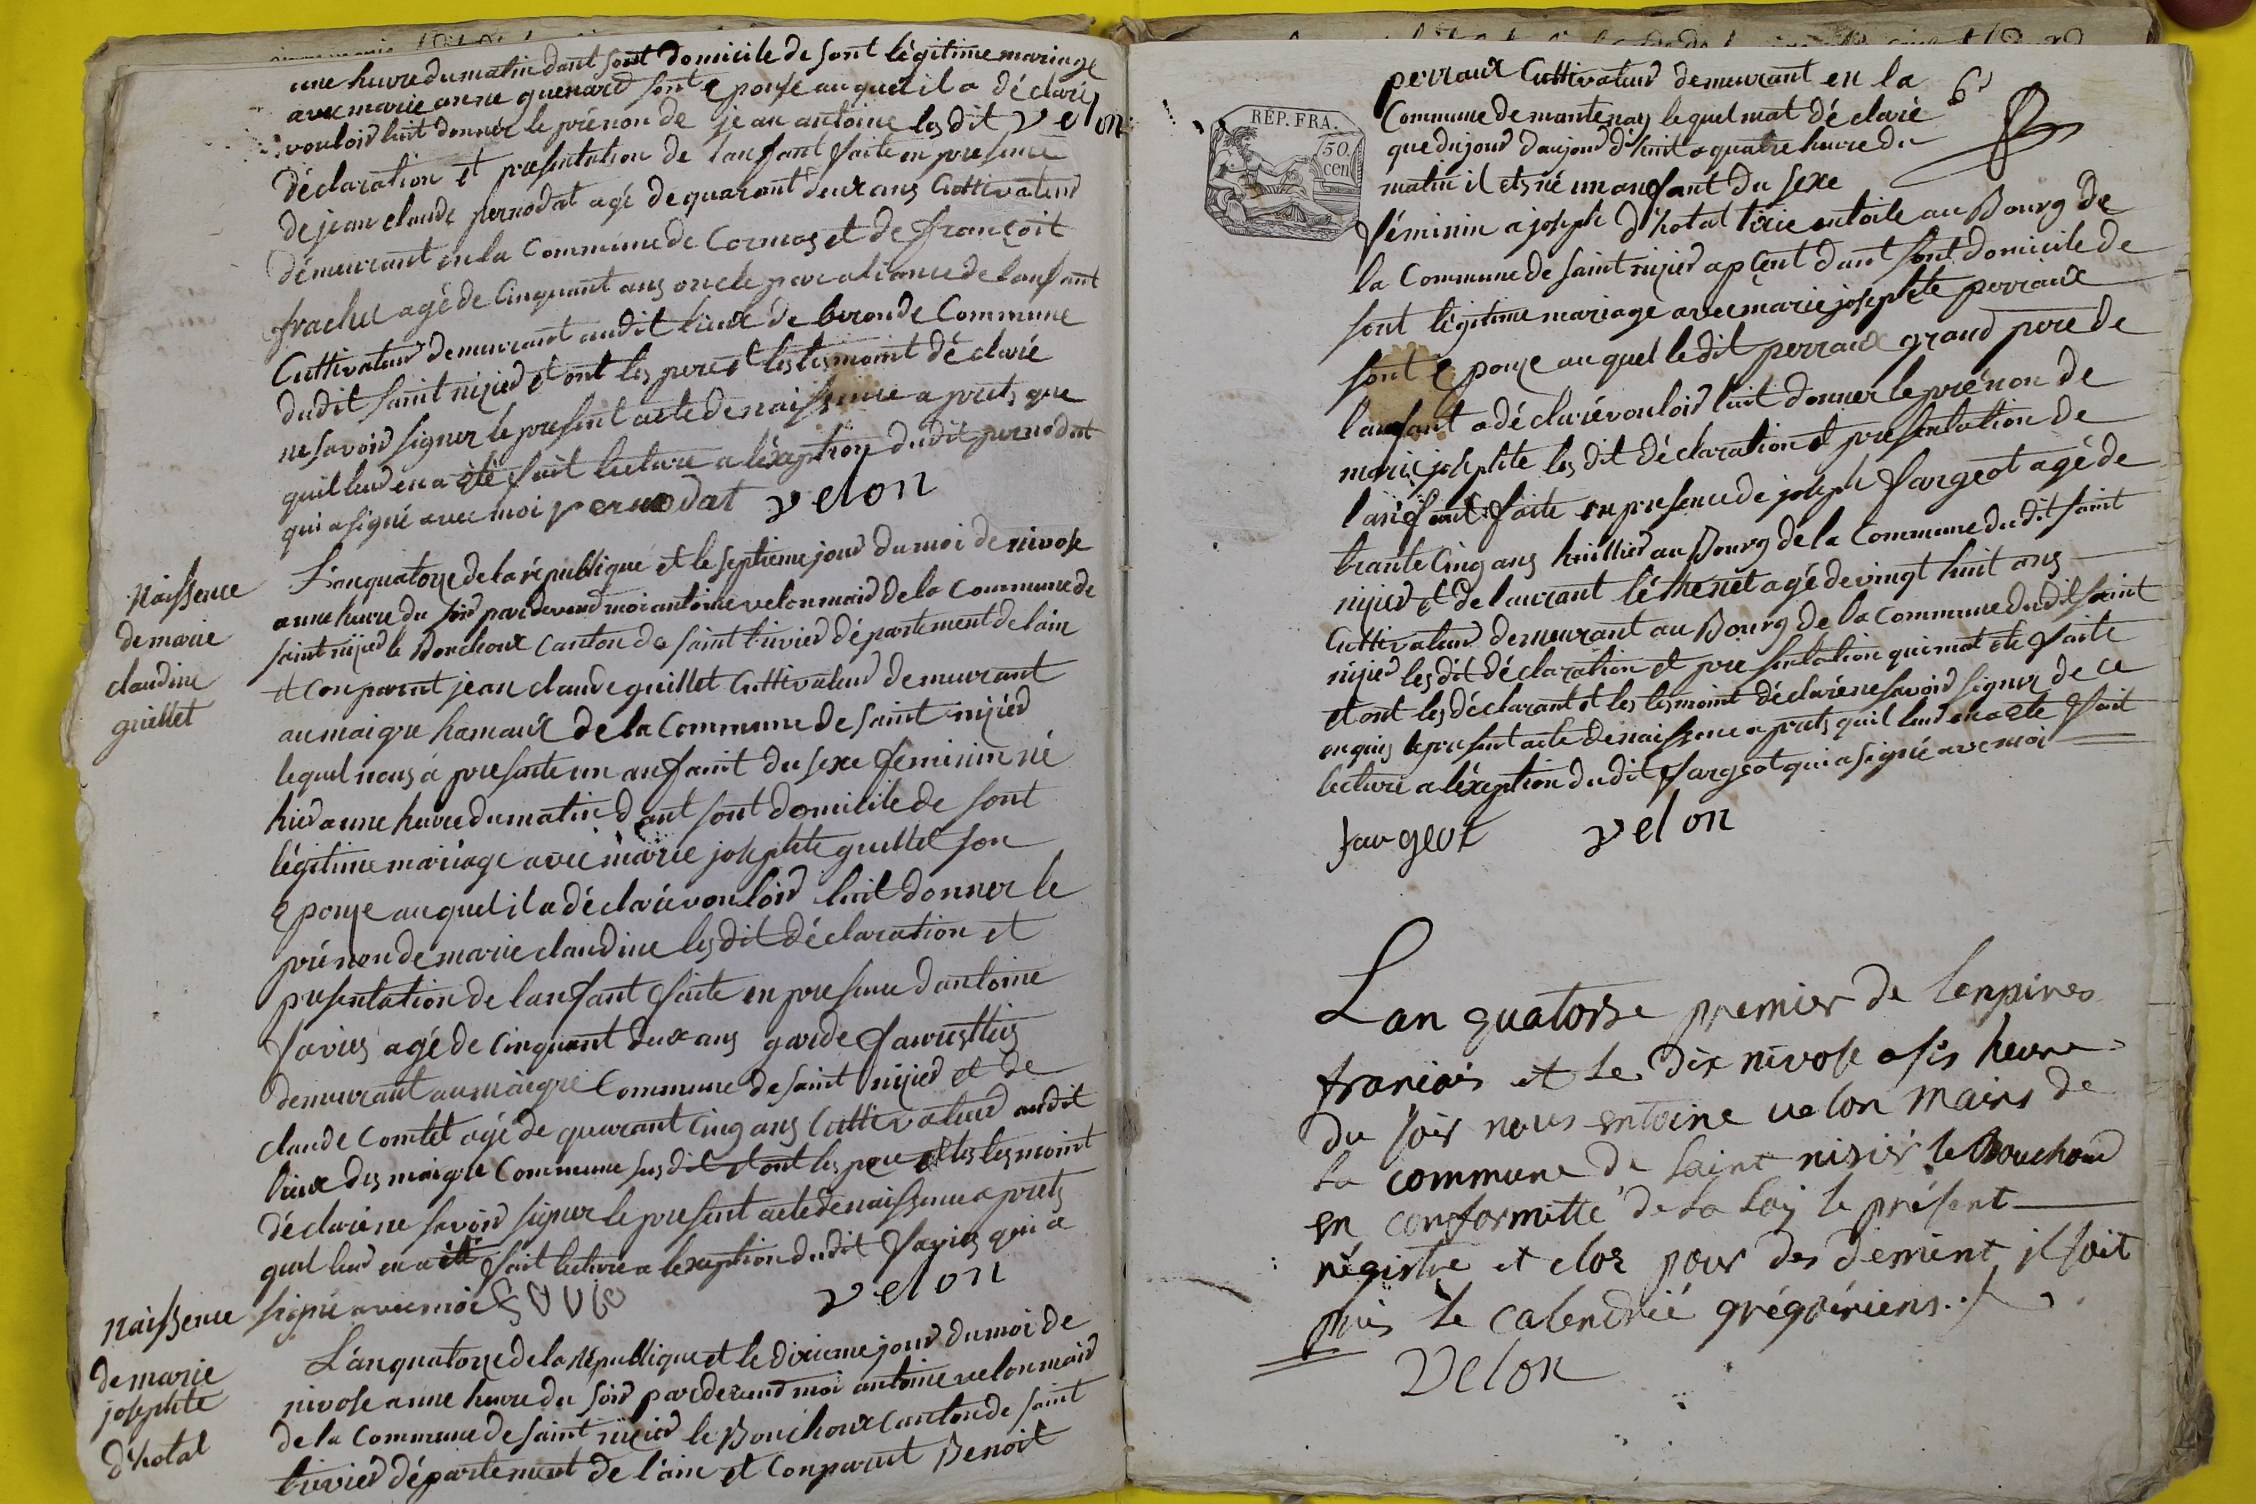 une heure du matin dant sont domicile de sont légitime mariage
avec marie anne guenard sont epouse au quel il a déclaré
vouloir luit donner le prénon de jean antoine les dit velon
déclaration et presentation de lanfant faite en presence
de jean claude pernodat agé de quarant deux ans Cultivateur
démeurant en la Commune de Cormos et de françoit
frachet agé de Cinquant ans oncle par aliance de lanfant
Cultivateur demeurant audit lieux de bironde Commune
dudit saint nizier et ont les pere et les tesmoint déclaré
ne savoir signer le present acte de naissence aprets que
quil leur en a été fait lecture a léxeption dudit pernodat
qui a signé avec moi pernodat velon
Naissence
de marie
claudine
guillet
L'an quatorze de la république et le septieme jour du moi de nivose
a une heure du soir pardevend moi antoine velon maid de la Commune de
saint nizier le Bouchoux Canton de saint trivier département de lain
et Conparent jean claude guillet Cultivateur demeurant
au maigre hamaux de la Commune de saint nizier
lequel nous à presente un anfant du sexe feminin né
hier a une heure du matin dant sont domicile de sont
légitime mariage avec marie josephte guillet son
epouse au quel il a déclaré vouloir luit donner le
prénon de marie claudine les dit déclaration et
presentation de lanfant faite en presence dantoine
favies agé de Cinquant deux ans garde faurestties
demeurant au maigre Commune de saint nizier et de
claude Comtet agé de quarant Cinq ans Cultivateur audit
lieux des maigre Commune susdit et ont les pere et les tesmoint
déclaré ne savoir signer le present acte de naissence aprets
quil leur en a été fait lecture a lexeption dudit favies qui a
signé avec moi velon
Naissence
de marie
josephte
d'hotal
L'an quatorze de la république et le dixieme jour du moi de
nivose a une heure du soir pardevend moi antoine velon maid
de la Commune de saint nizier le Bouchoux Canton de saint
trivier département de l'ain et Conparut Benoit
6
REP. FRA.
50
cen
perraux Cultivateur demeurant en la
Commune de mantenay lequel mat déclaré
que du jour daujour d'huit a quatre heure du
matin il ets né un anfant du sexe
féminin a joseph d'hotal tixie entoile au Bourg de
la Commune de saint nizier apsent dant sont domicile de
sont légitime mariage avec marie josephte perraux
sont epouse au quel ledit perraux grand pere de
lanfant a déclaré vouloir luit donner le prénon de
marie josephte les dit déclaration et presentation de
lanfant faite en presence de joseph fargeot agé de
trante Cinq ans huillier au Bourg de la Commune dudit saint
nizier et de laurant léthenet agé de vingt huit ans
Cultivateur demeurant au Bourg de la Commune dudit saint
nizier les dit déclaration et presentation qui mat ete faite
et ont les déclarant et les tesmoint déclaré ne savoir signer de ce
enquis le present acte de naissence aprets quil leur en a ete fait
lecture a léxeption dudit fargeot qui a signé avec moi
fargeot velon
Lan quatorse premier de lenpires
francois et le dix nivose a sis heure
du soir nous entoine velon mairs de
la commune de saint nisier le Bouchoud
en conformitté de la loy le présent
régistre et clos pour des dement il soit
puis le calendrié grégoiriens
velon